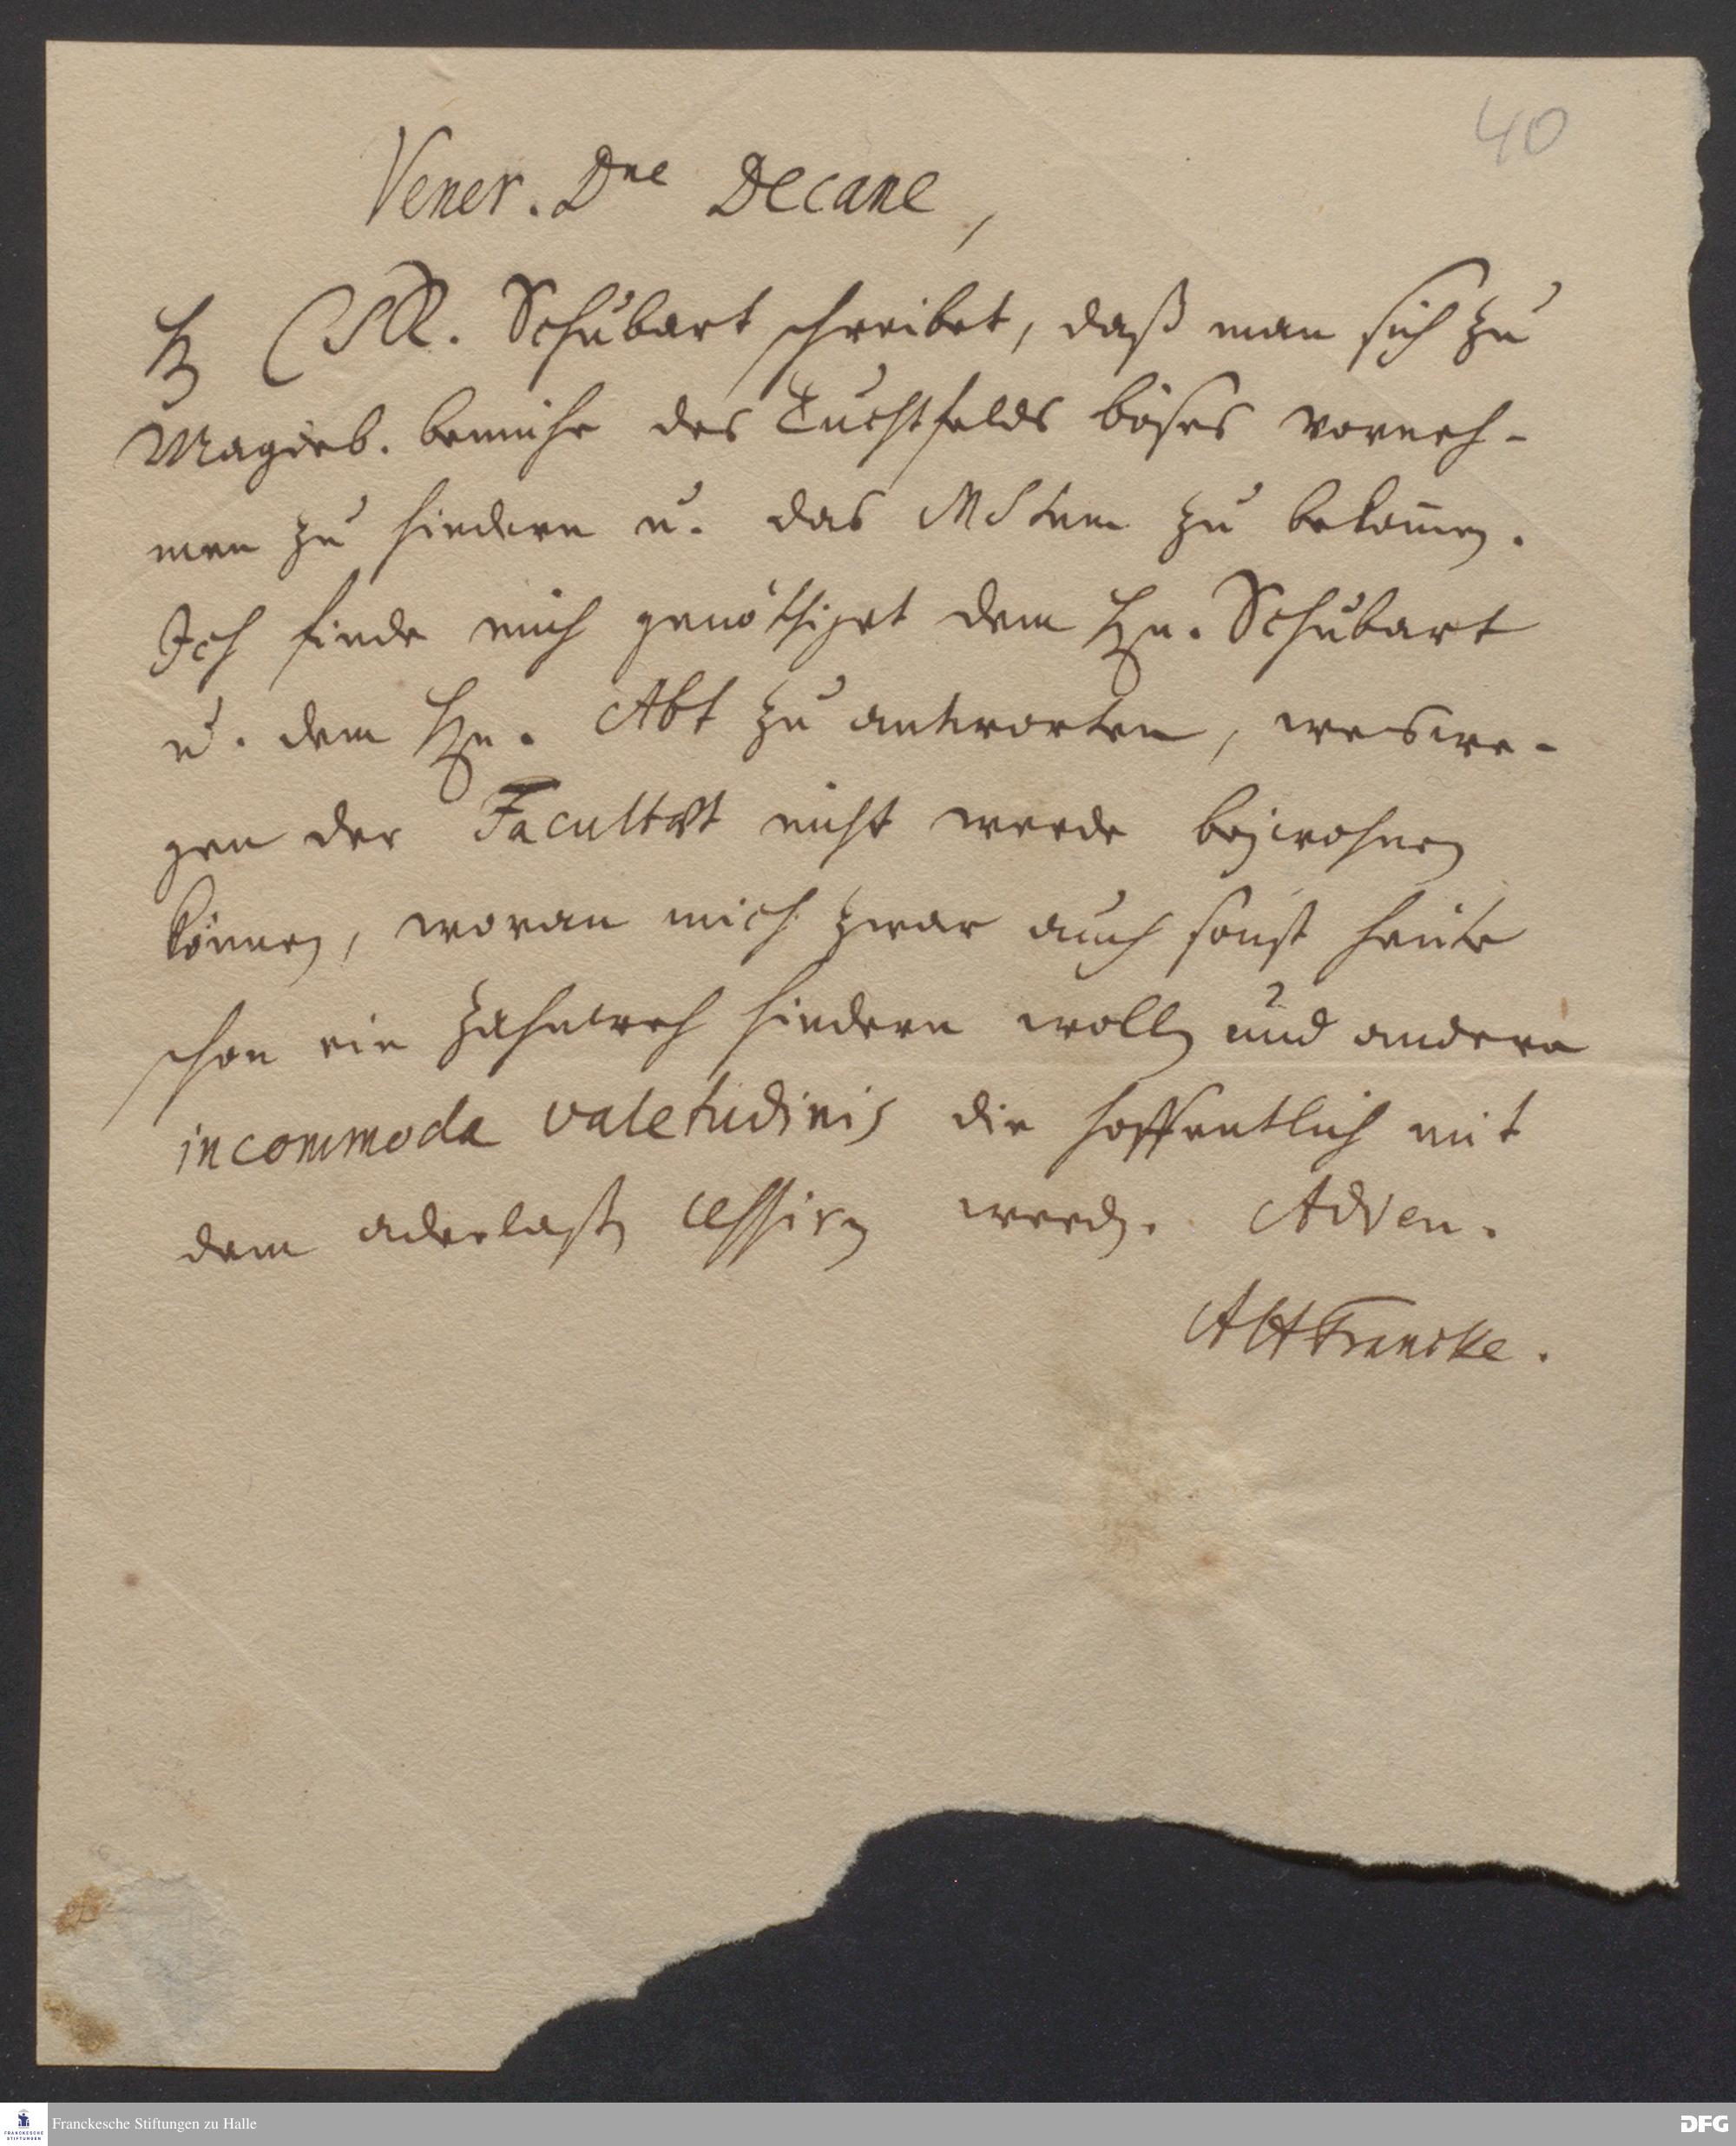 40
Vener. Dne Decane,
H CR. Schubart schreibet, daß man sich zu
Magdeb. bemühe des Tuchtfelds böses vorneh-
men zu hindern u. das MStum zu bekom̄en.
Ich finde mich genöthiget dem Hn. Schubart
u. dem Hn. Abt zu antworten, weswe-
gen der Facultæt nicht werde beywohnen
können, woran mich zwar auch sonst heute
schon ein Zahnweh hindern wollen und andere
incommoda valetudinis die hoffentlich mit
dem aderlaßen cessiren werden. Adieu.
AHFrancke.
Franckesche Stiftungen zu Halle
FRANCKESCHE
STIFTUNGEN
DFG